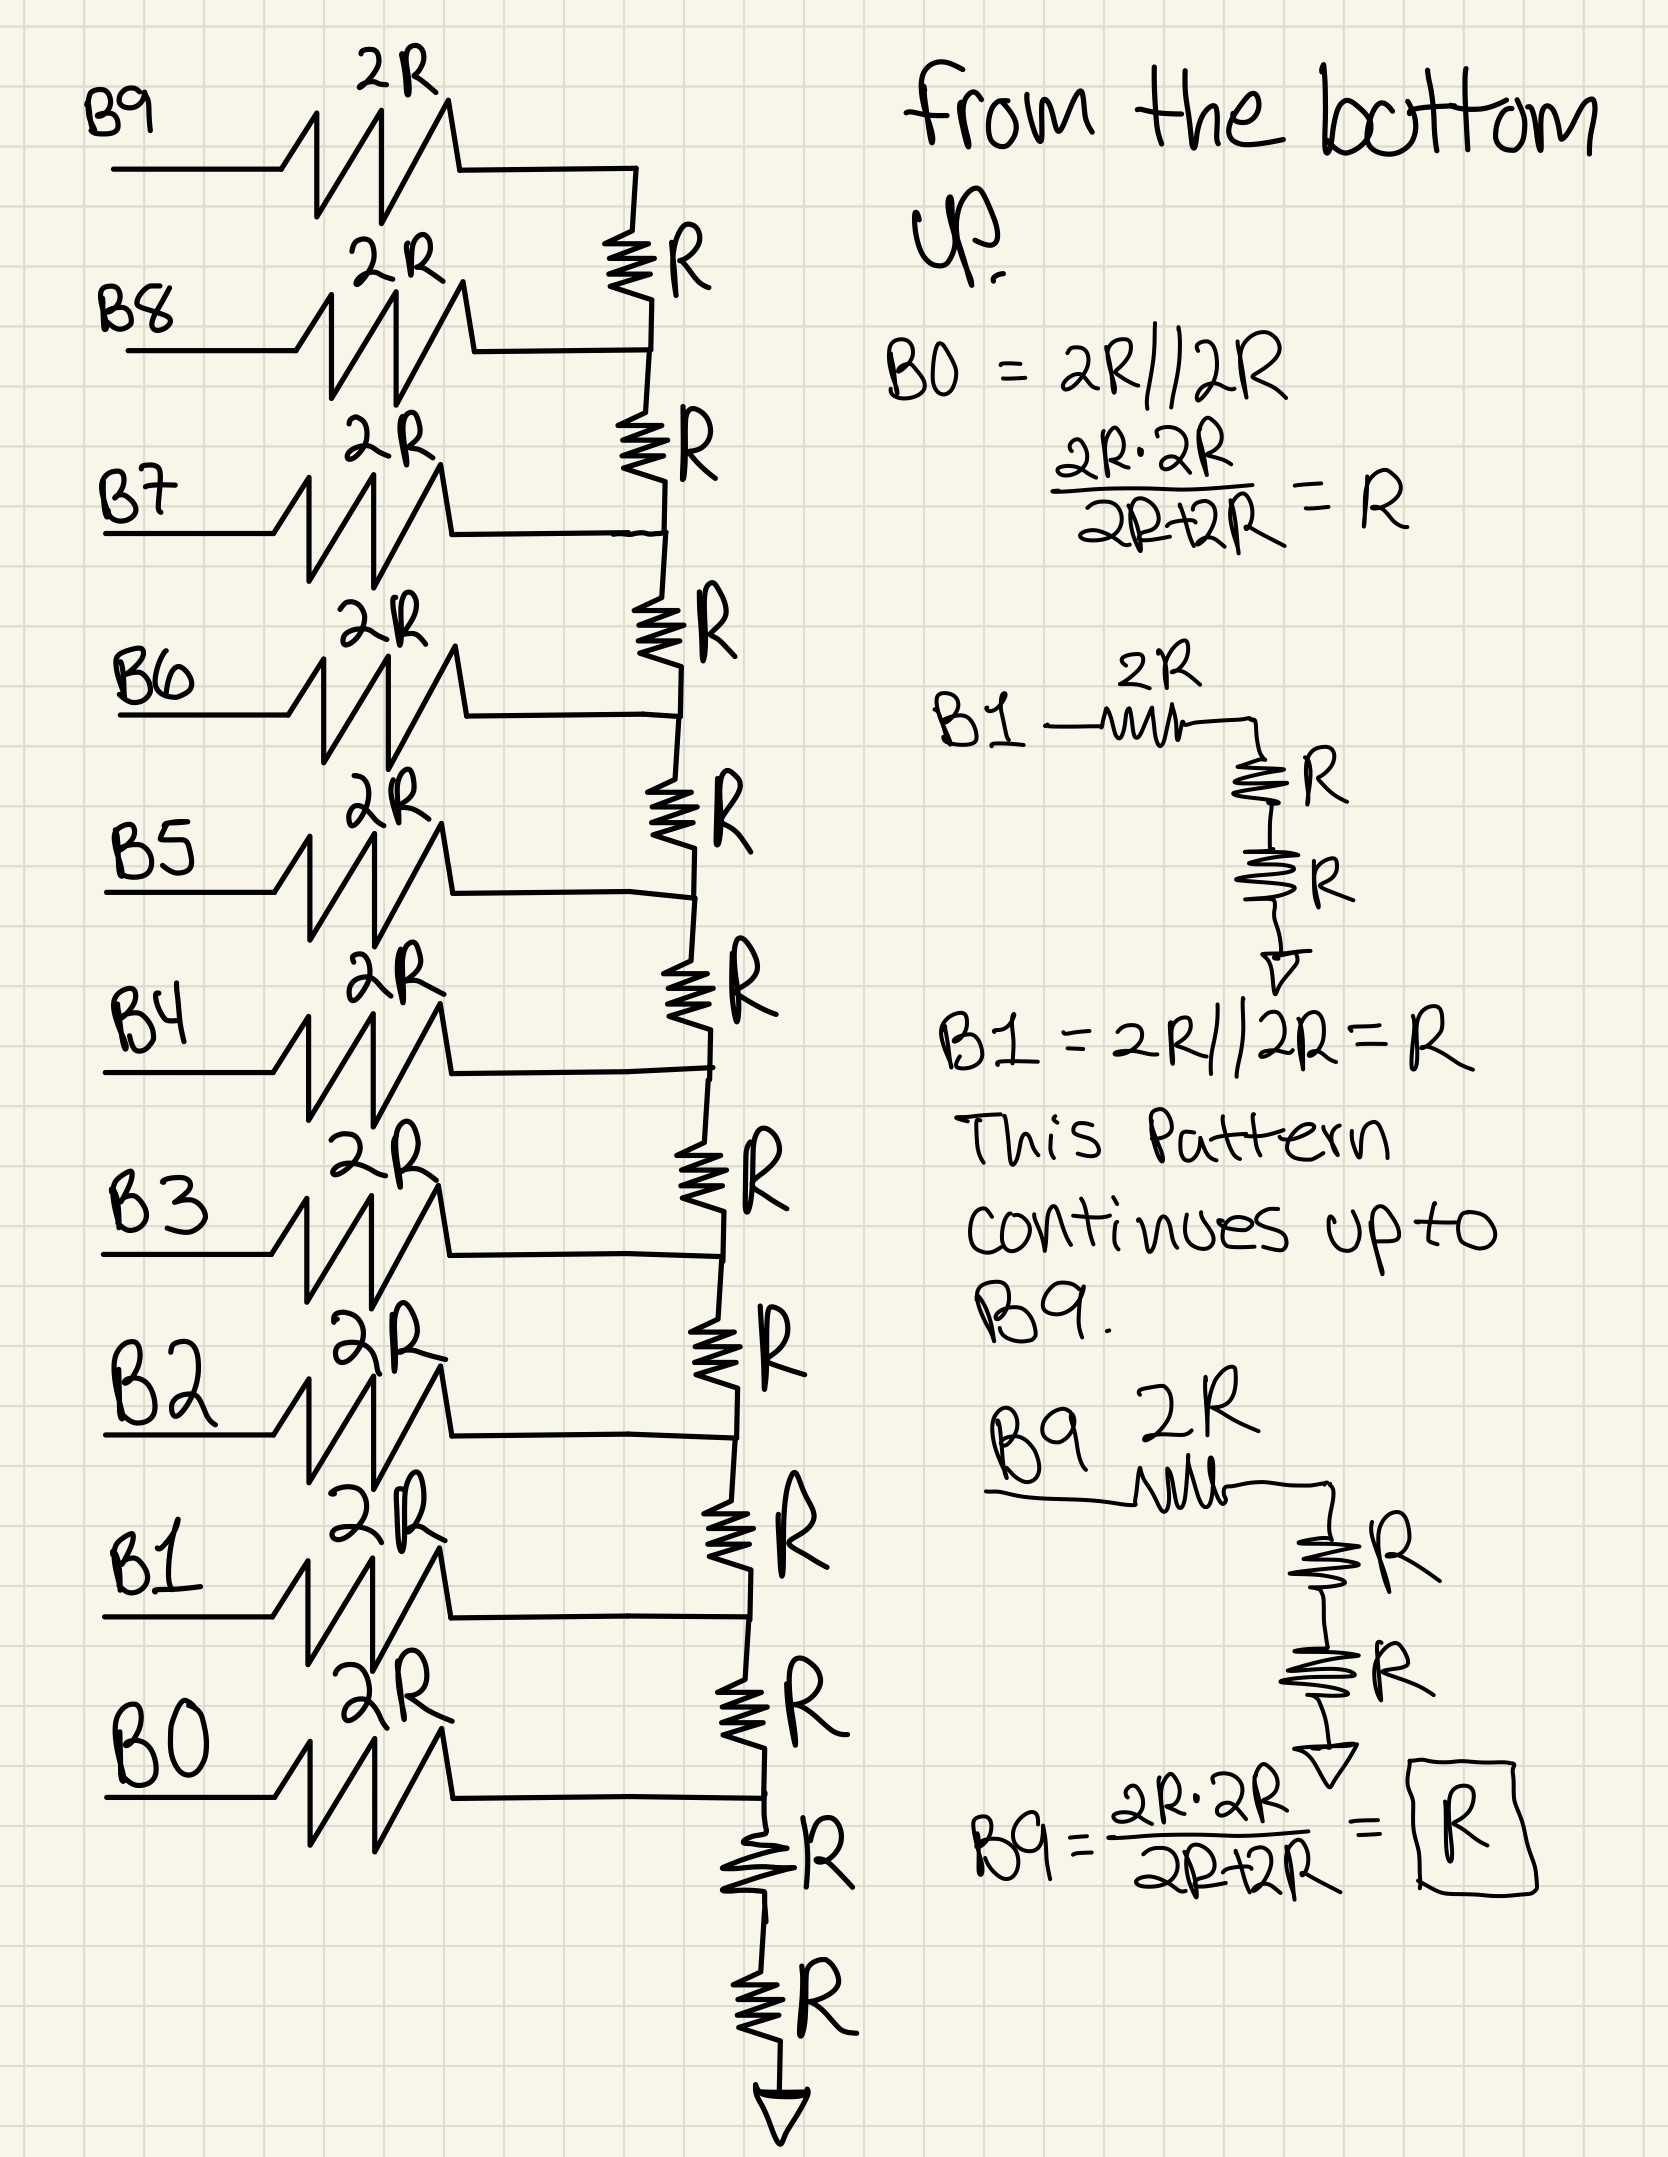 2R
B9
R
2R
B8
R
2R
B7
R
2R
B6
R
2R
B5
R
2R
B4
R
2R
B3
R
2R
B2
R
2R
B1
R
2R
B0
R
R
from the bottom
up.
B0 = 2R||2R
2R·2R
2R+2R = R
2R
B1
R
R
B1 = 2R||2R = R
This Pattern
continues up to
B9.
B9 2R
R
R
B9 = 2R·2R / 2R+2R = R